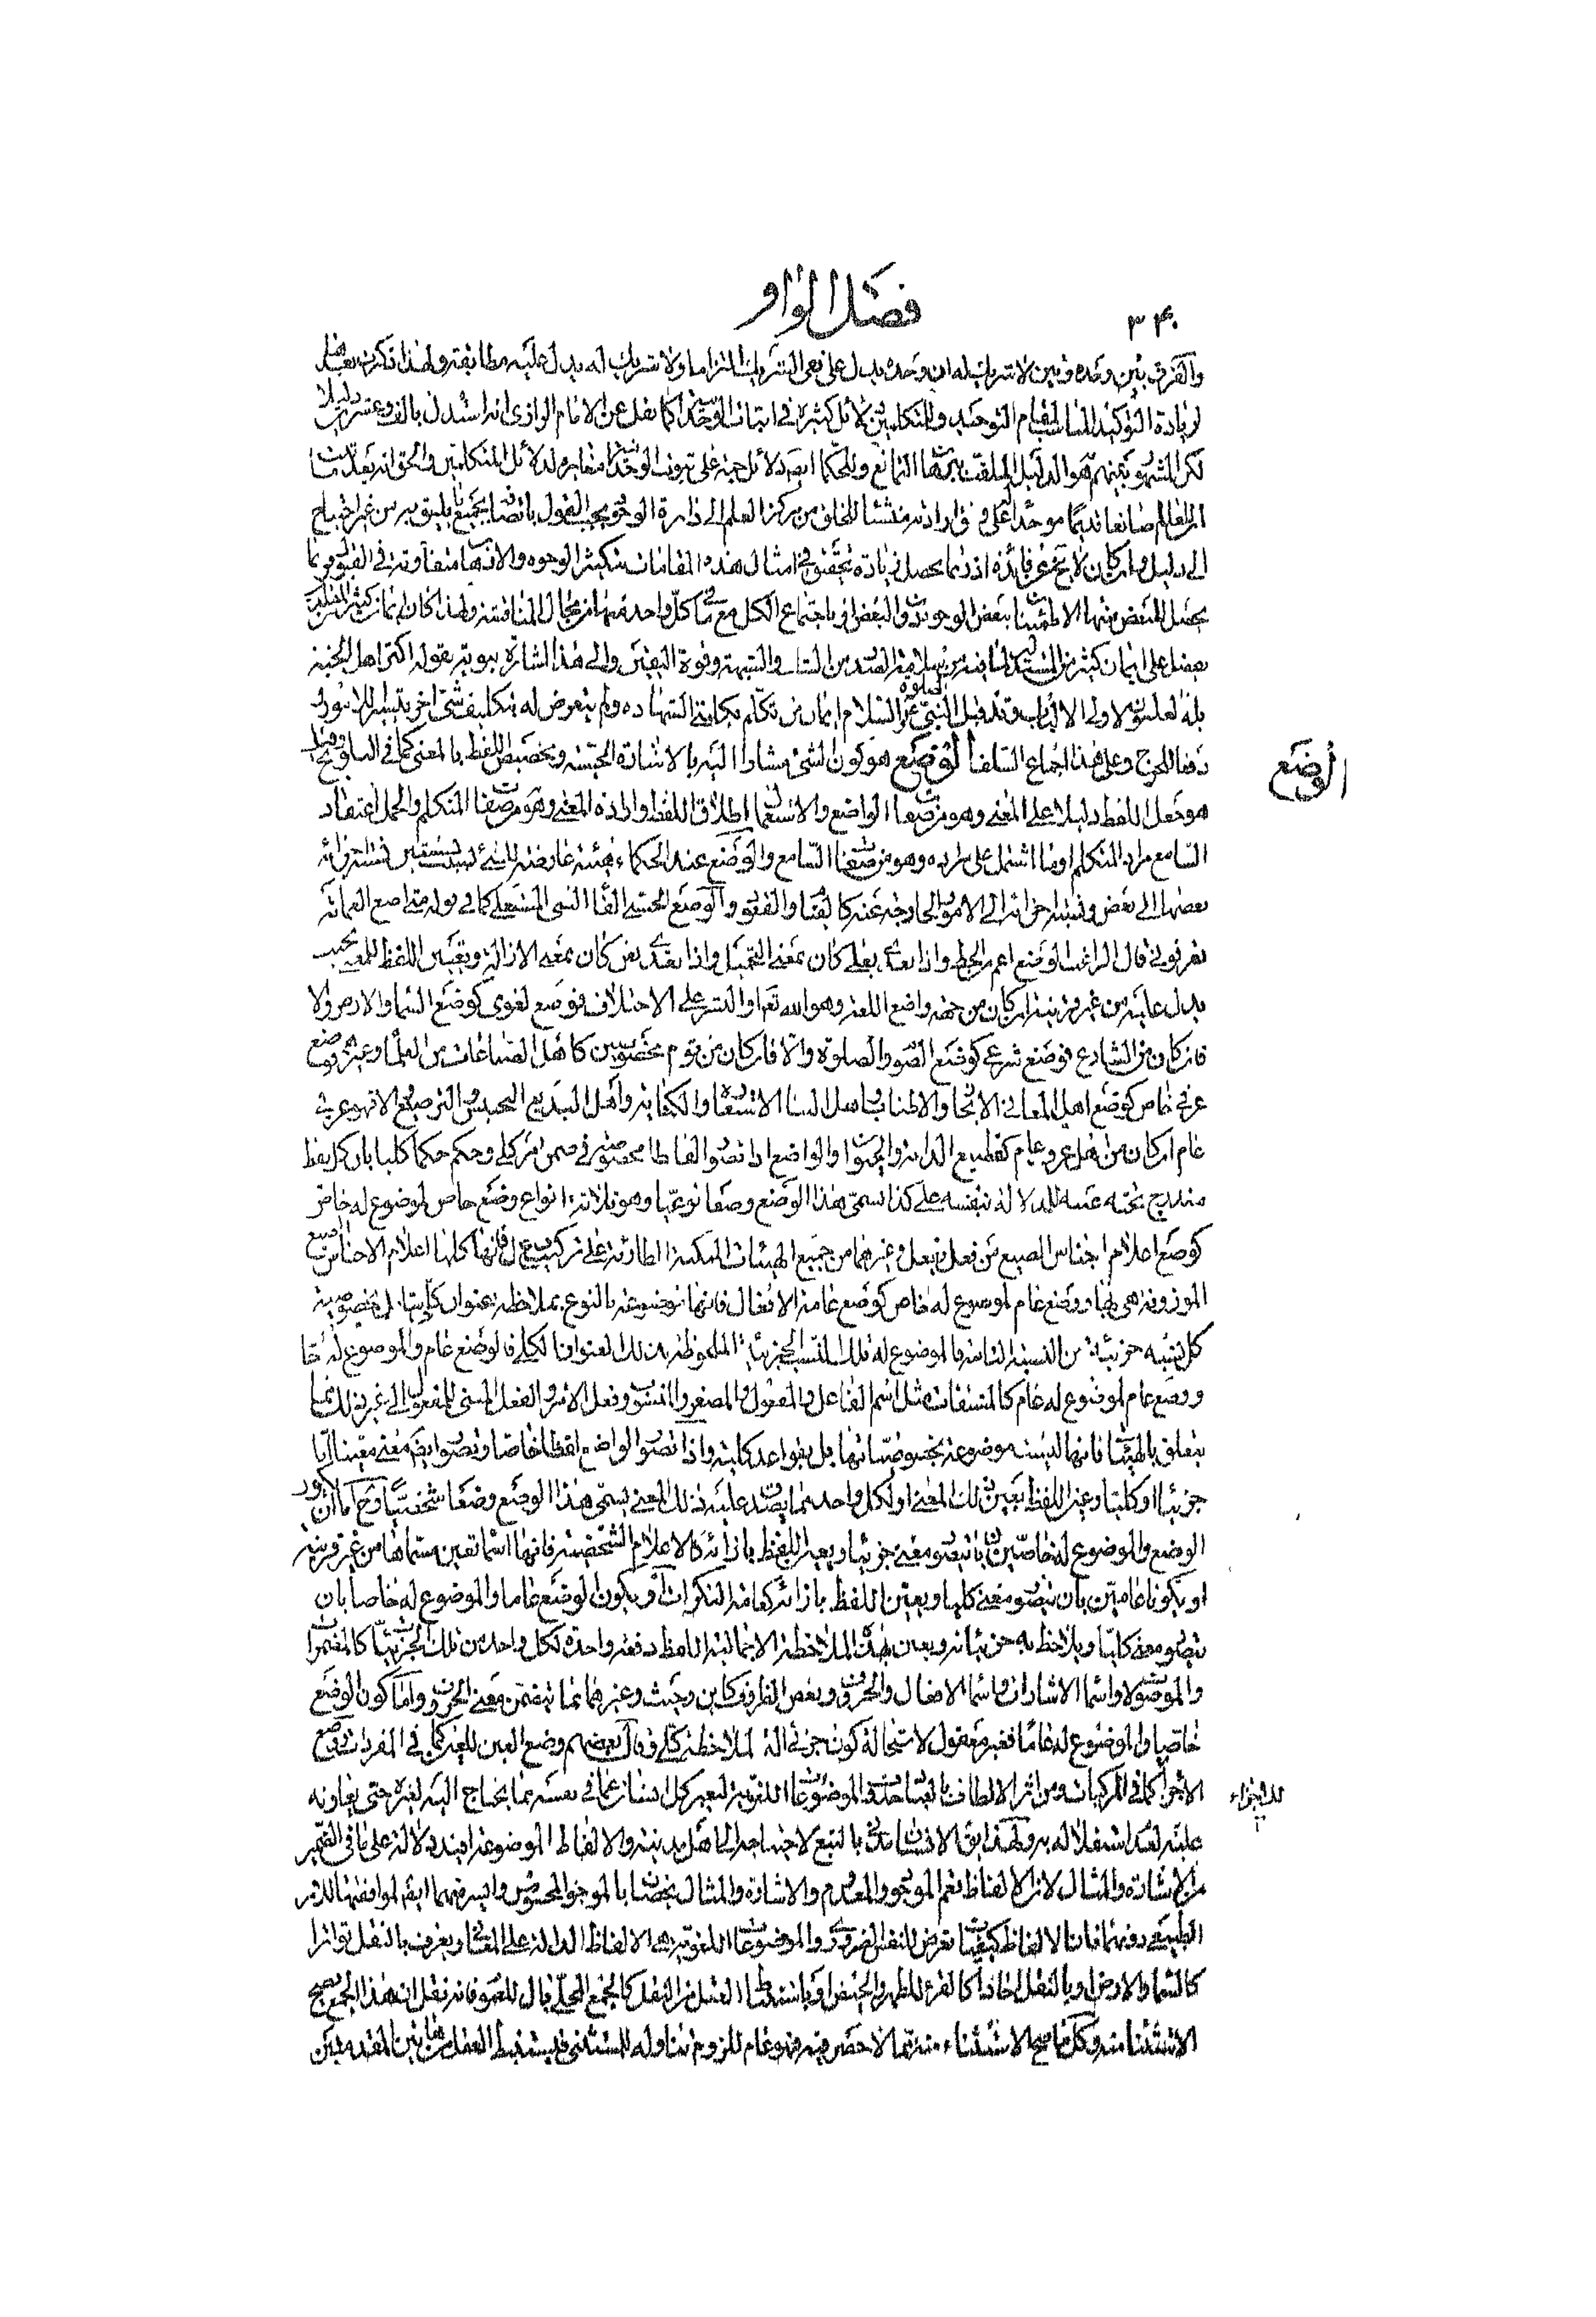 فصل الواو
٣٤٠
والفرق بين وحده وبين لا شريك له ان وحده يدل على نفى الشريك التزاما ولا شريك له يدل عليه مطابقة ولهذا ذكرت بعدها
لزيادة التوكيد المناسب لمقام التوحيد وللمتكلمين دلائل كثيرة في اثبات الوحدانية كما نقل عن الامام الرازى انه استدل بالف وعشرين دليلا
لكن المشهور بينهم هو الدليل الملقب ببرهان التمانع وللحكماء ايضا دلائل جمة على ثبوت الوحدانية مغايرة لدلائل المتكلمين والحق انه بعد ثبت
ان للعالم صانعا قديما موحدا على وفق ارادته منشئا للخلق من مركز العلم الى دائرة الوجود يجب القول باتصافه بجميع ما يليق به من غير احتياج
الى دليل وان كان لا يخ عن فائدة اذ ربما يحصل زيادة تحقيق في امثال هذه المقامات بتكثير الوجوه والاذهان متفاوتة في القبول فربما
يحصل للبعض منها الاطمئنان ببعض الوجوه دون البعض او باجتماع الكل مع ما في كل واحد منها من مجال المناقشة ولهذا كان ايمان كثير من المقلدين
يفضل على ايمان كثير من المستدلين لما فيه من سلامة الصدر من الشك والشبهة وقوة اليقين والى هذا اشارة نبوية بقوله اكثر اهل الجنة
بله لعليون لاولى الالباب وقد قبل النبي عليه الصلوة والسلام ايمان من تكلم بكلمتي الشهادة ولم يتعرض له بتكليف شئ اخر تيسيرا للامور و
دفعا للحرج وعلى هذا اجماع السلف الوضع هو كون الشئ مشارا اليه بالاشارة الحسية وتخصيص اللفظ بالمعنى كما في التلويح وقيل
هو جعل اللفظ دليلا على المعنى وهو من صفات الواضع والاستعمال اطلاق اللفظ وارادة المعنى وهو من صفات المتكلم والحمل اعتقاد
السامع مراد المتكلم او ما اشتمل على مراده وهو من صفات السامع والوضع عند الحكماء هيئة عارضة للشئ بسبب نسبتين نسبة اجزائه
بعضها الى بعض ونسبة اجزائه الى الامور الخارجة عنه كالقيام والقعود والوضع الحسى القاء الشئ المستعلى كما في قوله متى اضع العمامة
تعرفوني قال الراغب الوضع اعم من الحط واذا تعدى بعلى كان بمعنى التحميل واذا تعدى بعن كان بمعنى الازالة وتعيين اللفظ للمعنى بحيث
يدل عليه من غير قرينة ان كان من جهة واضع اللغة وهو الله تعالى او البشر على الاختلاف فوضع لغوى كوضع السماء والارض والا
فان كان من الشارع فوضع شرعى كوضع الصوم والصلوة والا فان كان من قوم مخصوصين كاهل الصناعات من العلماء وغيرهم فوضع
عرفى خاص كوضع اهل المعانى الايجاز والاطناب واهل البيان الاستعارة والكناية واهل البديع التجنيس والترصيع والا فهو عرفى
عام ان كان من اهل عرف عام كوضع الدابة والحيوان والواضع اذا تصور الفاظا مخصوصة في ضمن امر كلى وحكم حكما كليا بان كل لفظ
مندرج تحته عينه للدلالة بنفسه على كذا سمى هذا الوضع وضعا نوعيا وهو ثلاثة انواع وضع خاص لموضوع له خاص
كوضع اعلام اجناس الصيغ من فعل يفعل وغيرهما من جميع الهيئات الممكنة الطارئة على تركيب ف ع ل فانها كلها اعلام الاجناس الصيغ
الموزونة هى بها ووضع عام لموضوع له خاص كوضع عامة الافعال فانها موضوعة بالنوع بملاحظة عنوان كلى شامل بخصوصية
كل نسبة جزئية من النسبة التامة فالموضوع له تلك النسب الجزئية الملحوظة بذلك العنوان الكلى فالوضع عام والموضوع له خاص
ووضع عام لموضوع له عام كالمشتقات مثل اسم الفاعل والمفعول والمصغر والمنسوب وفعل الامر والفعل المبنى للمفعول الى غير ذلك مما
يتعلق بالهيئات فانها ليست موضوعة بخصوصياتها بل بقواعد كلية واذا تصور الواضع لفظا خاصا وتصور ايضا معنى معينا اما
جزئيا او كليا وعين اللفظ بعينه لذلك المعنى او لكل واحد مما يصدق عليه ذلك المعنى يسمى هذا الوضع وضعا شخصيا وح اما ان يكون
الوضع والموضوع له خاصين بان يتصور معنى جزئيا ويعين اللفظ بازائه كالاعلام الشخصية فانها اسماء تعين مسماها من غير قرينة
او يكونا عامين بان يتصور معنى كليا ويعين اللفظ بازائه كعامة النكرات او يكون الوضع عاما والموضوع له خاصا بان
يتصور معنى كليا ويلاحظ به جزئياته ويعين بهذه الملاحظة الاجمالية اللفظ دفعة واحدة لكل واحد من تلك الجزئيات كالمضمرات
والموصولات واسماء الاشارات واسماء الافعال والحروف وبعض الظروف كاين وحيث وغيرهما مما يتضمن معنى الحروف واما كون الوضع
خاصا والموضوع له عاما فغير معقول لاستحالة كون جزئى آلة لملاحظة كلى وقال بعضهم وضع العين للعين كما في المفردات ووضع
الاجزاء كما في المركبات ومن اثر الالطاف بالعباد احداث الموضوعات اللغوية ليعبر كل انسان عما في نفسه مما يحتاج اليه لغيره حتى يعاونه
عليه لعدم استقلاله به ولهذا يق الانسان مدنى بالطبع لاحتياجه الى اهل مدينته والالفاظ الموضوعة افيد دلالة على ما في الضمير
من الاشارة والمثال لان الالفاظ تعم الموجود والمعدوم والاشارة والمثال يختصان بالموجود المحسوس وايسر منهما ايضا لموافقتها للامر
الطبيعى دونهما فان الالفاظ كيفيات تعرض للنفس الضرورى والموضوعات اللغوية هى الالفاظ الدالة على المعانى ويعرف بالنقل تواترا
كالسماء والارض وبالنقل احادا كالقرء للطهر والحيض وباستنباط العقل من النقل كالجمع المحلى بال للعموم فانه نقل ان هذا الجمع يصح
الاستثناء منه وكل ما صح الاستثناء منه مما لا حصر فيه فهو عام للزوم تناوله للمستثنى فيستنبط العقل من هاتين المقدمتين
الوضع
للاجزاء